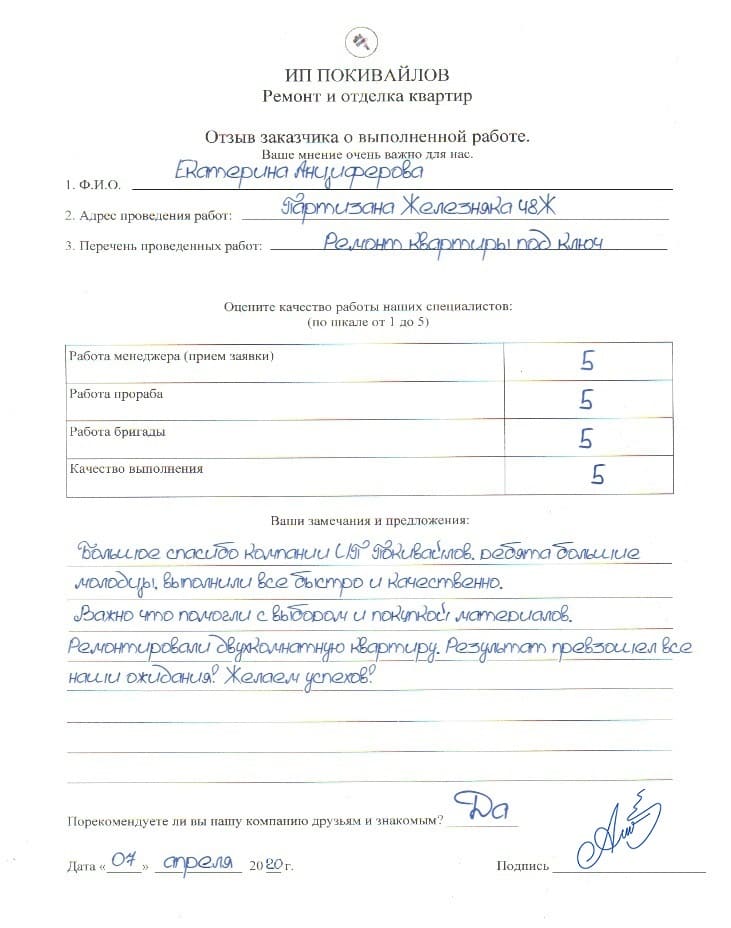 ИП ПОКИВАЙЛОВ
Ремонт и отделка квартир
Отзыв заказчика о выполненной работе.
Ваше мнение очень важно для нас.
1. Ф.И.О. Екатерина Анциферова
2. Адрес проведения работ: Партизана Железняка 48Ж
3. Перечень проведенных работ: Ремонт квартиры под ключ
Оцените качество работы наших специалистов:
(по шкале от 1 до 5)
Работа менеджера (прием заявки) 5
Работа прораба 5
Работа бригады 5
Качество выполнения 5
Ваши замечания и предложения:
Большое спасибо компании ИП Покивайлов, ребята большие
молодцы, выполнили все быстро и качественно.
Важно что помогли с выбором и покупкой материалов.
Ремонтировали двухкомнатную квартиру. Результат превзошел все
наши ожидания! Желаем успехов!
Порекомендуете ли вы нашу компанию друзьям и знакомым? Да
Дата «07» апреля 2020 г. Подпись